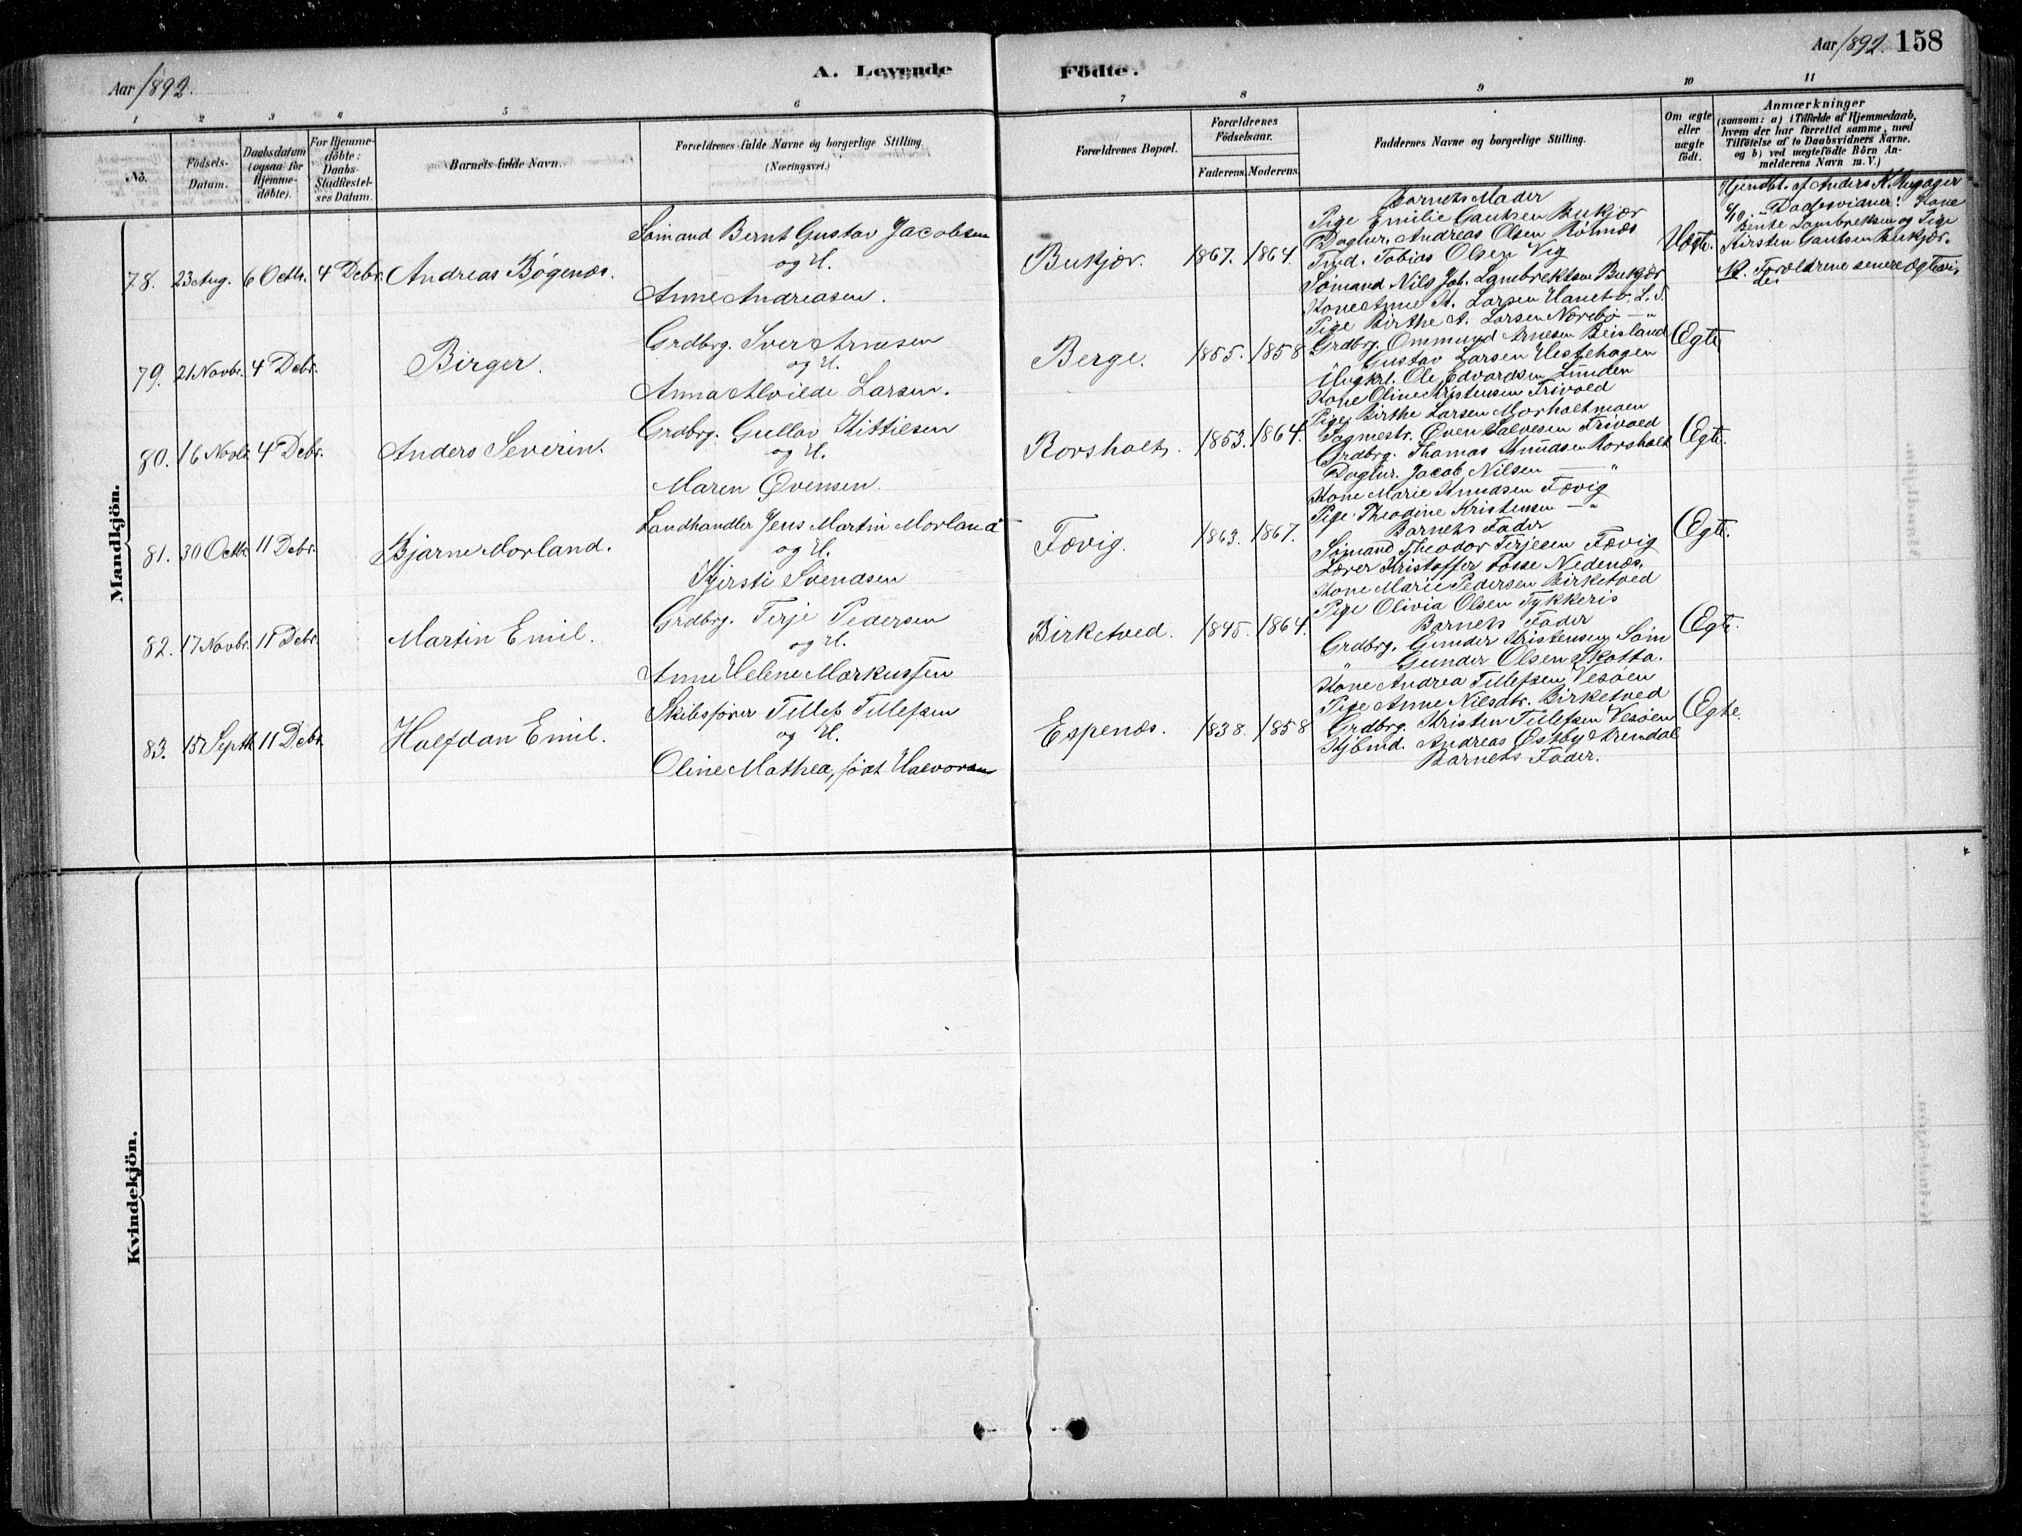 Aar 1892.
A. Levende
Fødte.
Aar 1892. 158
1 2 3 4 5 6 7 8 9 10 11
No.
Fødsels-Datum.
Daabsdatum (ogsaa for Hjemme-døbte).
For Hjemme-døbte: Daabs-Stadfæstel-ses Datum.
Barnets fulde Navn.
Forældrenes fulde Navne og borgerlige Stilling. (Næringsvei.)
Forældrenes Bopæl.
Forældrenes Fødselsaar.
Faderens. Moderens.
Faddernes Navne og borgerlige Stilling.
Om ægte eller uægte født.
Anmærkninger
(saasom: a) i Tilfælde af Hjemmedaab,
hvem der har forrettet samme, med
Tilføielse af to Daabsvidners Navne.
og b) ved uægtefødte Børn An-
melderens Navn m. V.)
Mandkjön.
78. 23 Aug. 6 Octb. 4 Debr. Andreas Bøgenæs.
Sømand Bernt Gustav Jacobsen
og U.
Anne Andreasen.
Bukjær. 1867. 1864.
Barnets Moder
Pige Emilie Gautsen Bukjær
Dagløn. Andreas Olsen Rønnæs
Tmd. Tobias Olsen Vig
Sømand Nils Joh. Lambrektsen Bukjær
Uægte.
Hjemdbt. af Anders K.
6/10. Daabsvidner: Kone
Bente Lambreksen og Pige
Kirsten Gautsen Bukjær.
NB. Forældrene senere Ægtevi-
de
79. 21 Novbr. 4 Debr. Birger.
Grdbrg. Iver Arnesen
og H.
Anna Alvilde Larsen.
Berge. 1855. 1858
Kone Anne M. Larsen L. S.
Pige Birthe A. Larsen Næsbø —"
Grdbrg. Ommund Arnesen Beisland
Gustav Larsen Hestehagen
Ungkrl. Ole Edvardsen Lunden
Ægte
80. 16 Novb. 4 Debr. Anders Severin.
Grdbrg. Gullov Kittilsen
og H.
Maren Øvensen.
Rorsholt. 1853. 1864.
Kone Oline Kristensen Trivold
Pige Birthe Larsen Morholtmoen
Tagmestr. Øven Salvesen Trivold
Grdbrg. Thomas Knudsen Rorsholt
Dagløn. Jacob Nilsen —"
Ægte.
81. 30 Octb. 11 Debr. Bjarne Morland.
Landhandler Jens Martin Morland
og H.
Kjersti Svendsen
Fævig. 1863. 1867.
Kone Marie Knudsen Fævig
Pige Theodine Kristensen —"
Barnets Fader
Sømand Theodor Terjesen Fævig
Lærer Kristoffer Fosse Nedenæs.
Ægte.
82. 17 Novbr. 11 Debr. Martin Emil.
Grdbrg. Terje Pedersen
og H.
Anne Helene Markussen
Birketved. 1845. 1864.
Kone Marie Pedersen Birketved
Pige Olivia Olsen Tykkeris
Barnets Fader
Grdbrg. Gunder Kristensen, Søm
" Gunder Olsen Skotta.
Ægte.
83. 15 Septb. 11 Debr. Halfdan Emil.
Skibsfører Tellef Tellefsen
og H.
Oline Mathea, født Halvorsen
Espenæs. 1838. 1858
Kone Andrea Tellefsen Vesøen
Pige Anne Nilsdtr. Birketved
Grdbrg. Kristen Tellefsen Vesøen
Kjbmd. Andreas Østby Arendal
Barnets Fader.
Ægte.
Kvindekjön.